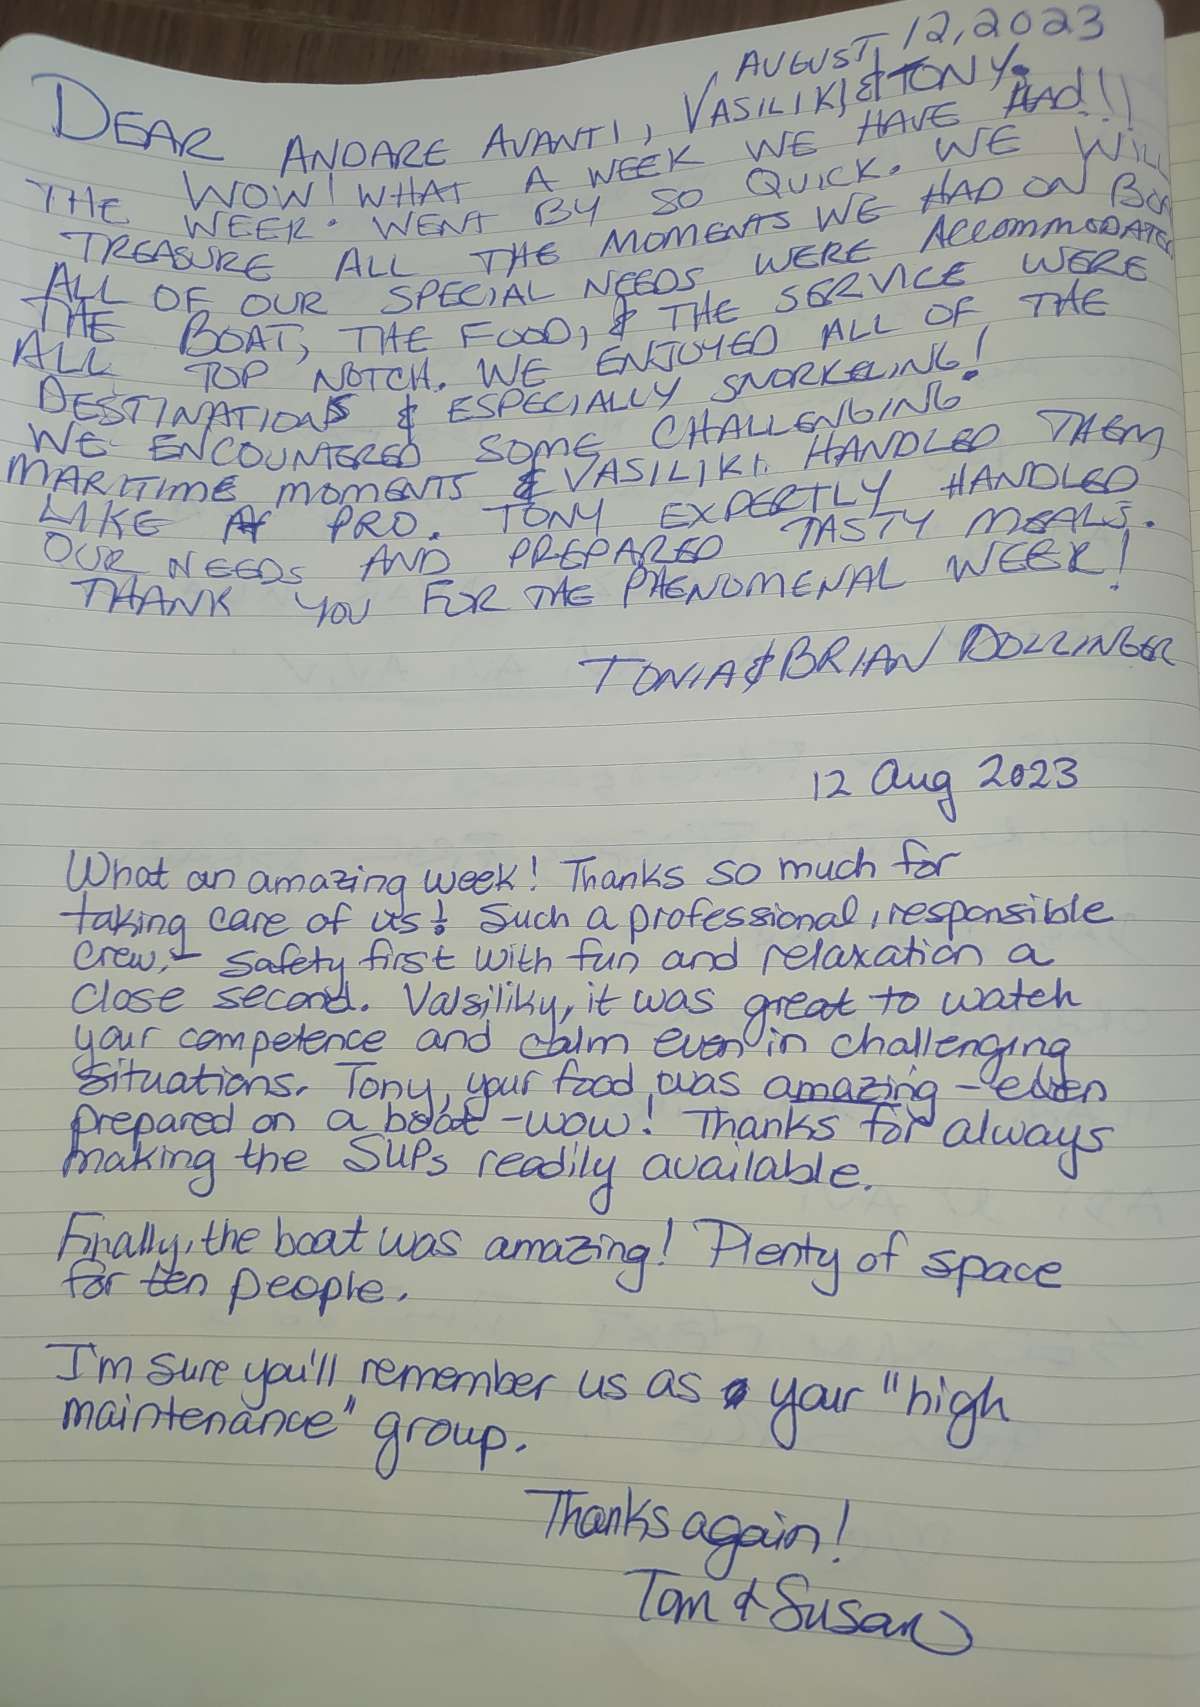 AUGUST, 12, 2023
DEAR ANDARE AVANTI, VASILIKI & TONY.
WOW! WHAT A WEEK WE HAVE HAD!!!
THE WEEK WENT BY SO QUICK. WE WILL
TREASURE ALL THE MOMENTS WE HAD ON
ALL OF OUR SPECIAL NEEDS WERE ACCOMMODATED
THE BOAT, THE FOOD, & THE SERVICE WERE
ALL TOP NOTCH. WE ENJOYED ALL OF THE
DESTINATIONS & ESPECIALLY SNORKELING!
WE ENCOUNTERED SOME CHALLENGING
MARITIME MOMENTS & VASILIKI HANDLED THEM
LIKE A PRO. TONY EXPERTLY HANDLED
OUR NEEDS AND PREPARED TASTY MEALS.
THANK YOU FOR THE PHENOMENAL WEEK!
TONIA & BRIAN
12 Aug 2023
What an amazing week! Thanks so much for
taking care of us! Such a professional, responsible
crew. Safety first with fun and relaxation a
close second. Valsiliky, it was great to watch
your competence and calm even in challenging
situations. Tony, your food was amazing - even
prepared on a boat - wow! Thanks for always
making the SUPs readily available.
Finally, the boat was amazing! Plenty of space
for ten people.
I'm sure you'll remember us as your "high
maintenance" group.
Thanks again!
Tom & Susan